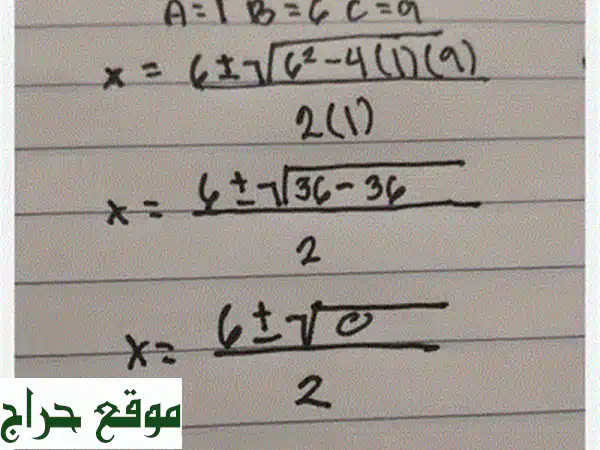 A=1 B=6 C=9
x = 6±√6²-4(1)(9)
2(1)
x = 6±√36-36
2
x = 6±√0
2
موقع حراج